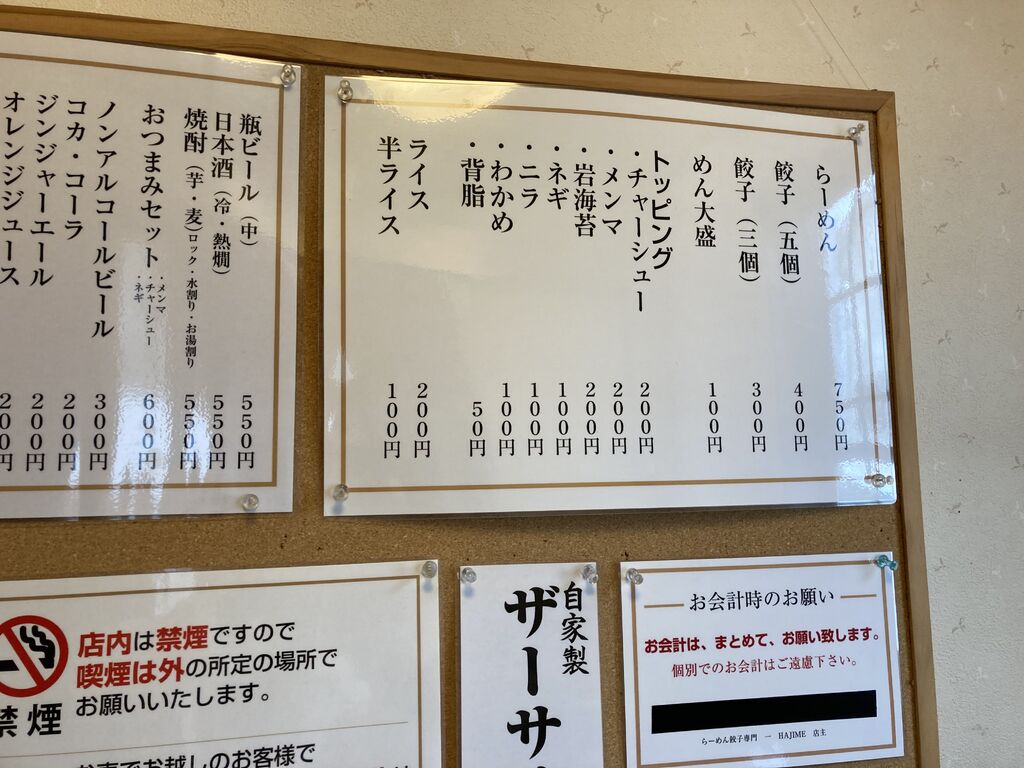 らーめん 750円
餃子（五個） 400円
餃子（三個） 300円
めん大盛 100円
トッピング
・チャーシュー 200円
・メンマ 200円
・岩海苔 200円
・ネギ 100円
・ニラ 100円
・わかめ 100円
・背脂 50円
ライス 200円
半ライス 100円
瓶ビール（中） 550円
日本酒（冷・熱燗） 550円
焼酎（芋・麦）ロック・水割り・お湯割り 550円
おつまみセット ・メンマ ・チャーシュー ・ネギ 600円
ノンアルコールビール 300円
コカ・コーラ 200円
ジンジャーエール 200円
オレンジジュース 200円
店内は禁煙ですので
喫煙は外の所定の場所で
お願いいたします。
禁煙
お越しのお客様で
自家製
ザーサ
お会計時のお願い
お会計は、まとめて、お願い致します。
個別でのお会計はご遠慮下さい。
らーめん餃子専門 一 HAJIME 店主